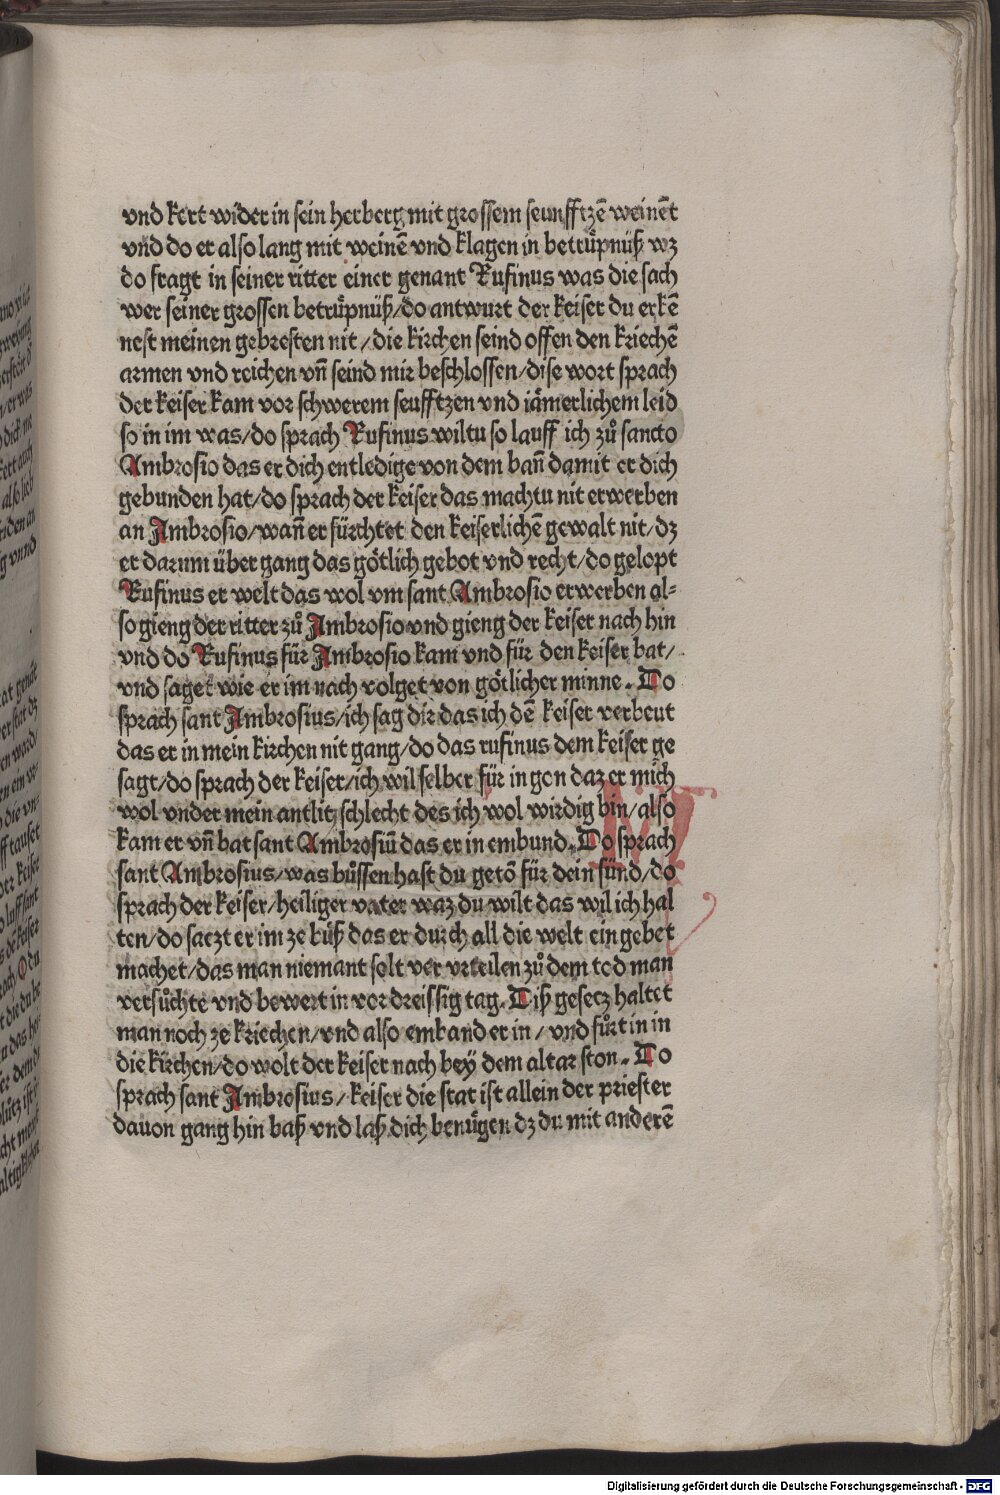 vnd kert wider in sein herberg mit grossem seunfftzē weinēt
vnd do er also lang mit weinē vnd klagen in betruͤpnüß wz
do fragt in seiner ritter einer genant Rufinus was die sach
wer seiner grossen betruͤpnüß/do antwurt der keiser du erkē
nest meinen gebresten nit/die kirchen seind offen den kriechē
armen vnd reichen vn̄ seind mir beschlossen/dise wort sprach
der keiser kam vor schwerem seufftzen vnd iämerlichem leid
so in im was/do sprach Rufinus wiltu so lauff ich zuͦ sancto
Ambrosio das er dich entledige von dem ban̄ damit er dich
gebunden hat/do sprach der keiser das machtu nit erwerben
an Ambrosio/wan̄ er fürchtet den keiserlichē gewalt nit/dz
er darum über gang das götlich gebot vnd recht/do gelopt
Rufinus er welt das wol vm sant Ambrosio erwerben al-
so gieng der ritter zuͦ Ambrosio vnd gieng der keiser nach hin
vnd do Rufinus für Ambrosio kam vnd für den keiser bat/
vnd saget wie er im nach volget von götlicher minne. Do
sprach sant Ambrosius/ich sag dir das ich dē keiser verbeut
das er in mein kirchen nit gang/do das rufinus dem keiser ge
sagt/do sprach der keiser/ich wil selber für in gon daz er mich
wol vnder mein antlitz schlecht des ich wol wirdig bin/also
kam er vn̄ bat sant Ambrosiū das er in embund. Do sprach
sant Ambrosius/was buͦssen hast du getō für dein sünd/do
sprach der keiser/heiliger vater waz du wilt das wil ich hal
ten/do saczt er im ze buͦß das er durch all die welt ein gebet
machet/das man niemant solt ver vrteilen zuͦ dem tod man
versuͦchte vnd bewert in vor dreissig tag. Diß gesecz haltet
man noch ze kriechen/vnd also emband er in/vnd fuͦrt in in
die kirchen/do wolt der keiser nach bey dem altar ston. Do
sprach sant Ambrosius/keiser die stat ist allein der priester
dauon gang hin baß vnd laß dich benuͤgen dz du mit anderē
Digitalisierung gefördert durch die Deutsche Forschungsgemeinschaft - DFG